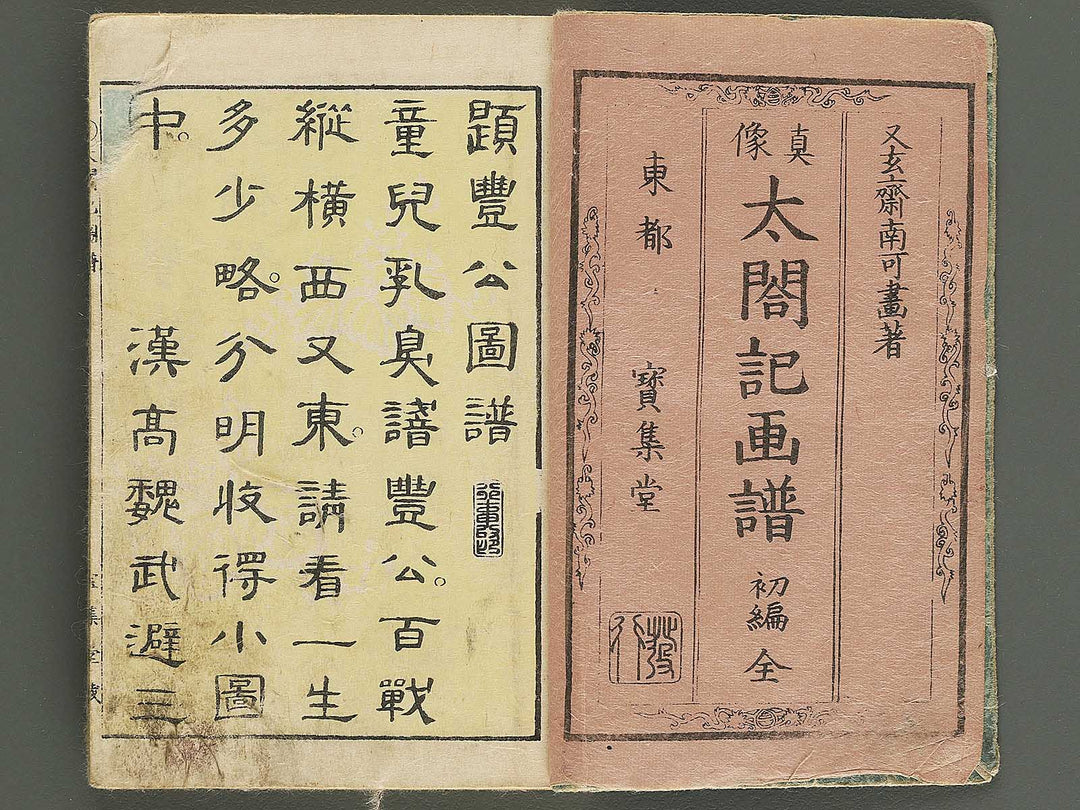 又玄齋南可畫著
真像
太閤記画譜 初編 全
東都 寳集堂
發行
題豐公圖譜
童兒乳臭諳豐公。百戰
縱橫西又東。請看一生
多少略。分明收得小圖
中。 漢髙魏武避三